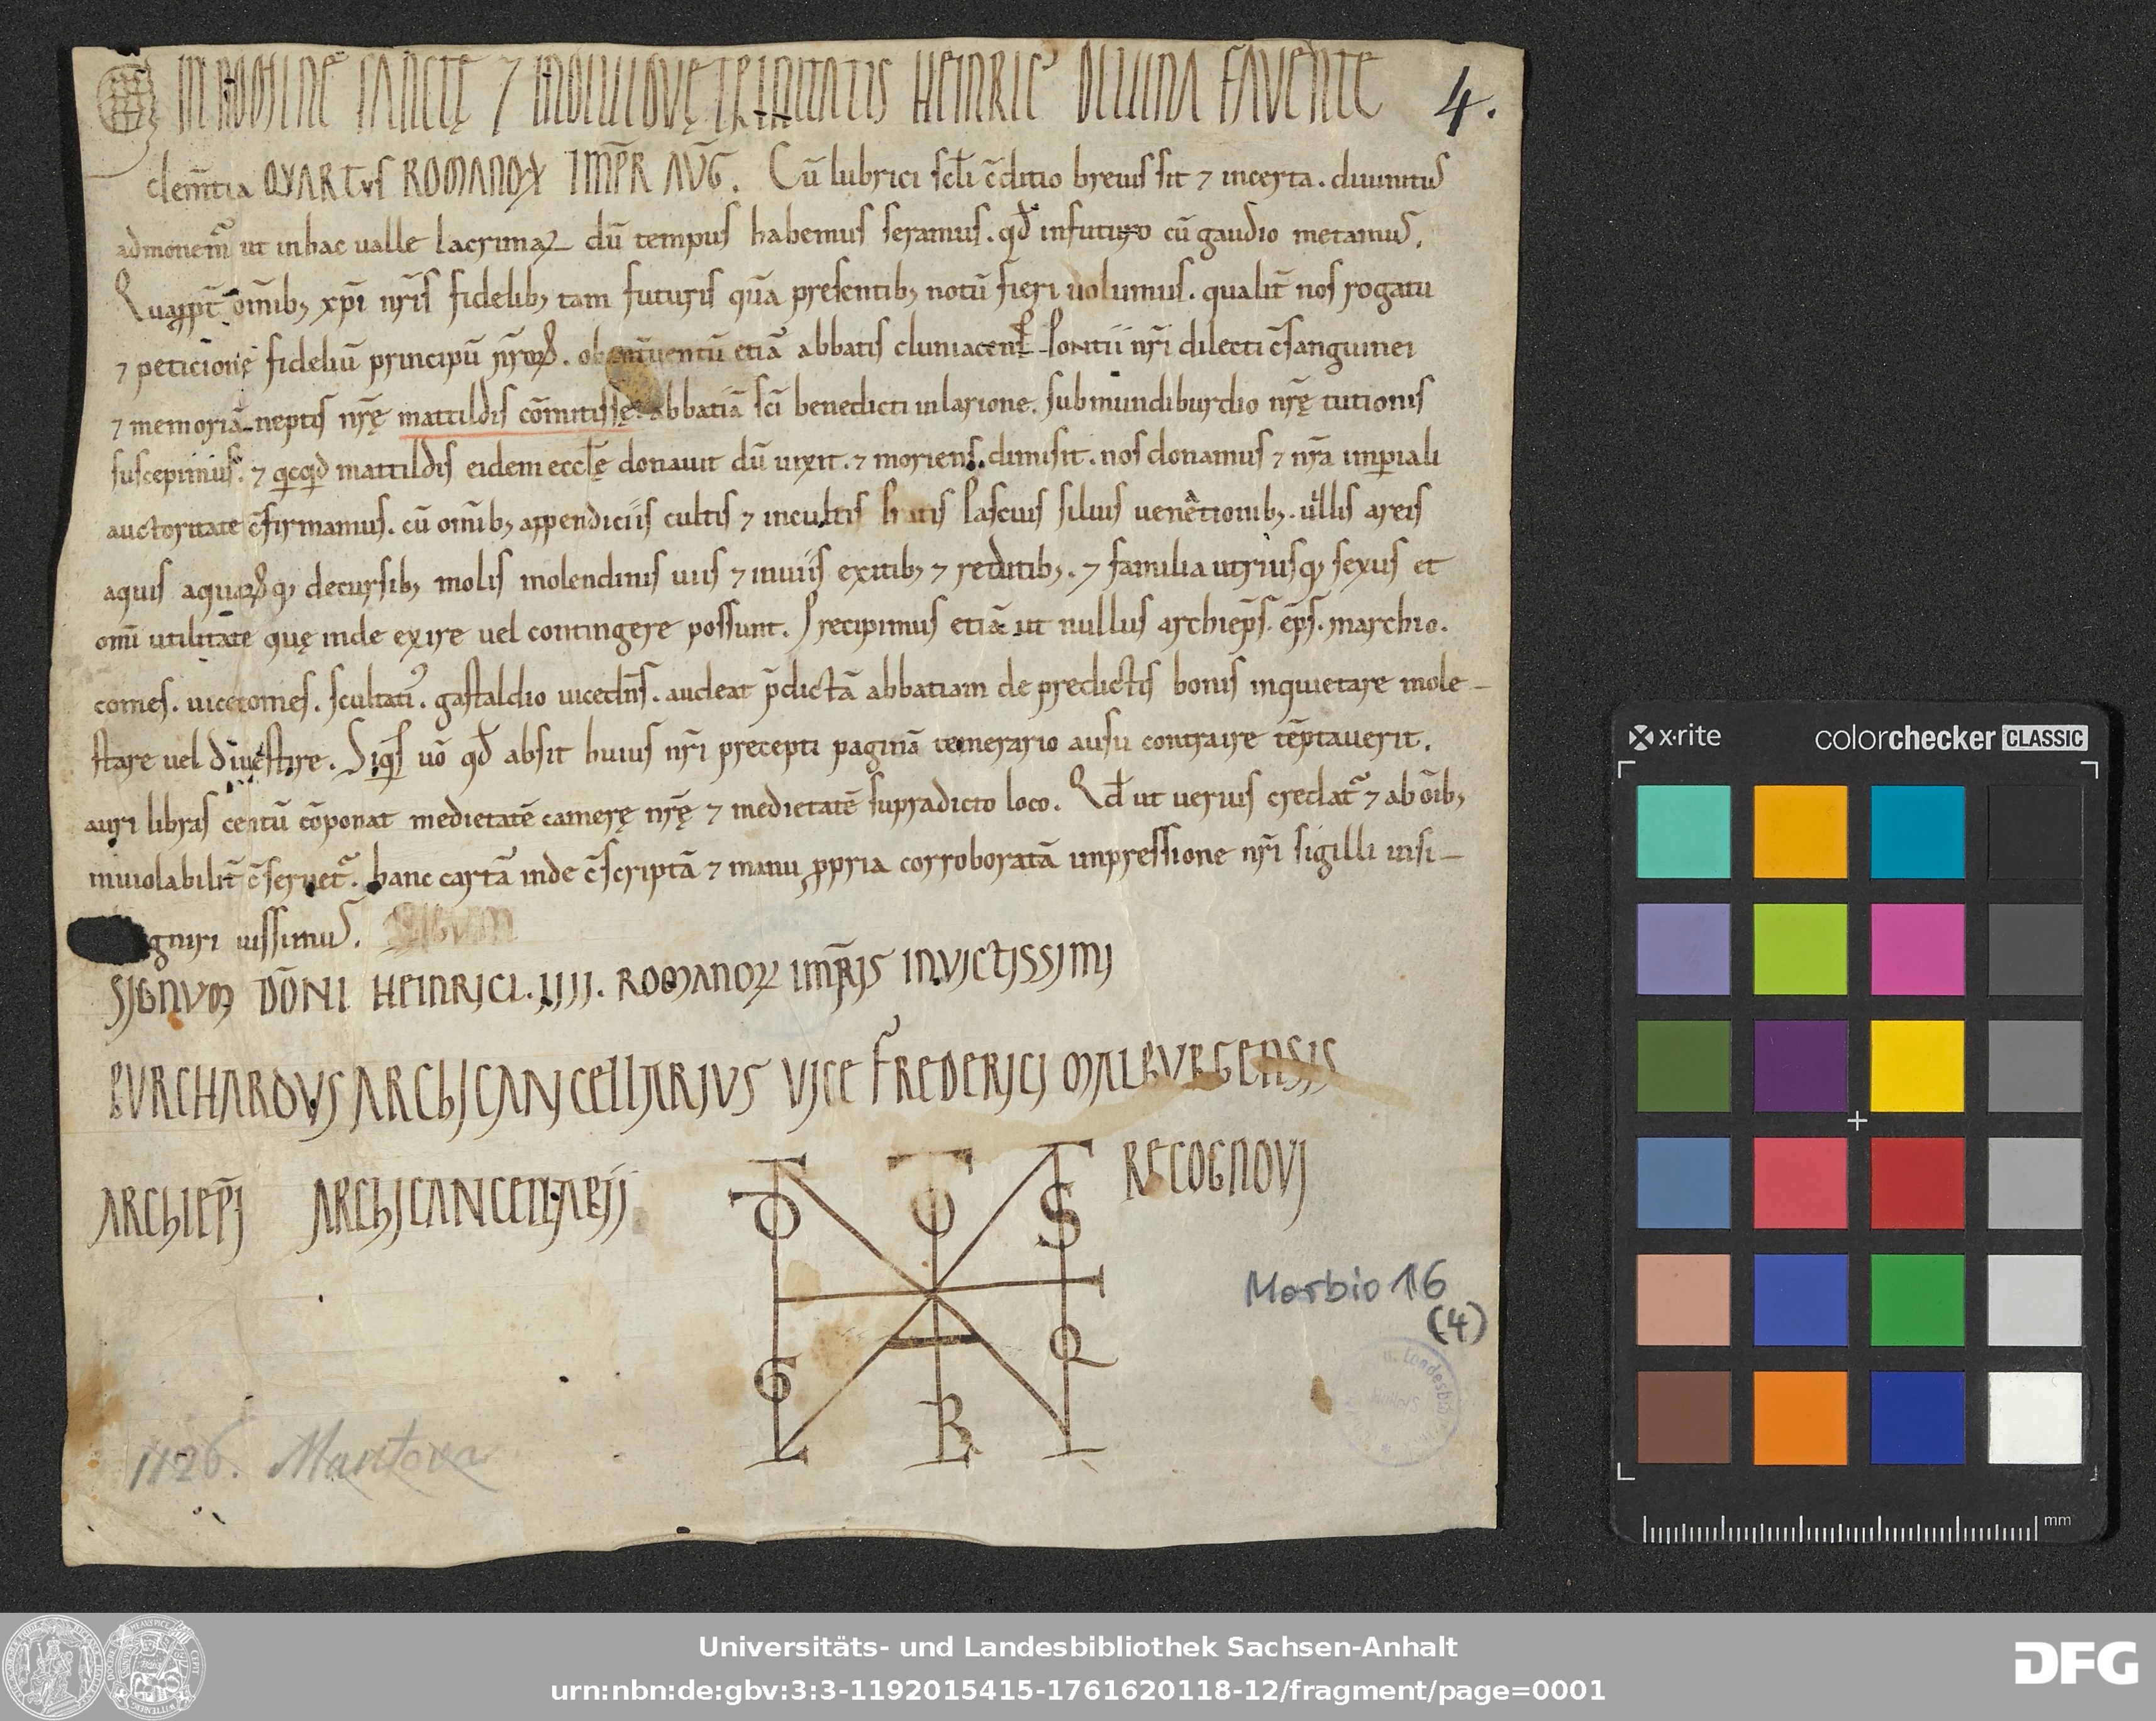 IN NOMINE SANCTĘ ⁊ INDIUIDUĘ TRINITATIS HEINRIC᾽ DIUINA FAVENTE 4.
clem̄tia QVARTVS ROMANOꝜ IMP̄R AV̄G. Cū lubrici sc̄li c̄ditio breuis sit ⁊ incerta. diuinitus
admonem̃ ut in hac ualle lacrimaꝝ dū tempus habemus seramus. qđ in futuro cū gaudio metamus.
Quapp̄t om̄ibꝫ xp̄i nr̄is fidelibꝫ tam futuris quā presentibꝫ notū fieri uolumus. qualit̄ nos rogatu
⁊ peticionę fideliū principū nr̄oꝝ. ob inūentū etiā abbatis cluniacens̄ Pontii nr̄i dilecti c̄sanguinei
⁊ memoriā neptis nr̄ę mattildis cōmitissę abbatiā sc̄i benedicti in larione. sub mundiburdio nr̄ę tutionis
suscepimus. ⁊ qͥcqͥd mattildis eidem eccl̄ę donauit dū uixit. ⁊ moriens. dimisit. nos donamus ⁊ nr̄a imꝑiali
auctoritate c̄firmamus. cū om̄ibꝫ appendiciis cultis ⁊ incultis pascuis siluis uenationibꝫ. uillis areis
aquis aquaꝝqꝫ decursibꝫ molis molendinis uiis ⁊ inuiis exitibꝫ ⁊ reditibꝫ. ⁊ familia utriusqꝫ sexus et
om̄i utilitate quę inde exire uel contingere possunt. Precipimus etiā ut nullus archiep̄s. ep̄s. marchio.
comes. uicecomes. scultati᾽. gastaldio uicedn̄s. audeat p̄dictā abbatiam de predictis bonis inquietare mole-
stare uel diuestire. Siqͥs uō qđ absit huius nr̄i precepti paginā temerario ausu contraire tēptauerit.
auri libras centū cōponat medietatē camerę nr̄ę ⁊ medietatē supradicto loco. Qđ ut uerius credat̃ ⁊ ab ōibꝫ
inuiolabilit̄ c̄seruet̃. hanc cartā inde c̄scriptā ⁊ manu ꝓpria corroboratā impressione nr̄i sigilli insi-
gniri iussimus. SIGNVM
SIGNVM DŌNI HEINRICI. IIII. ROMANOꝜ IMP̄RIS INVICTISSIMI
BVRCHARDVS ARCHICANCELLARIVS VICE FREDERICI MALBVRGENSIS
ARCHIEP̄I ARCHICANCELLARII RECOGNOVI
Morbio 16
(4)
1126. Mantova
x-rite colorchecker CLASSIC
mm
Universitäts- und Landesbibliothek Sachsen-Anhalt
urn:nbn:de:gbv:3:3-1192015415-1761620118-12/fragment/page=0001
DFG